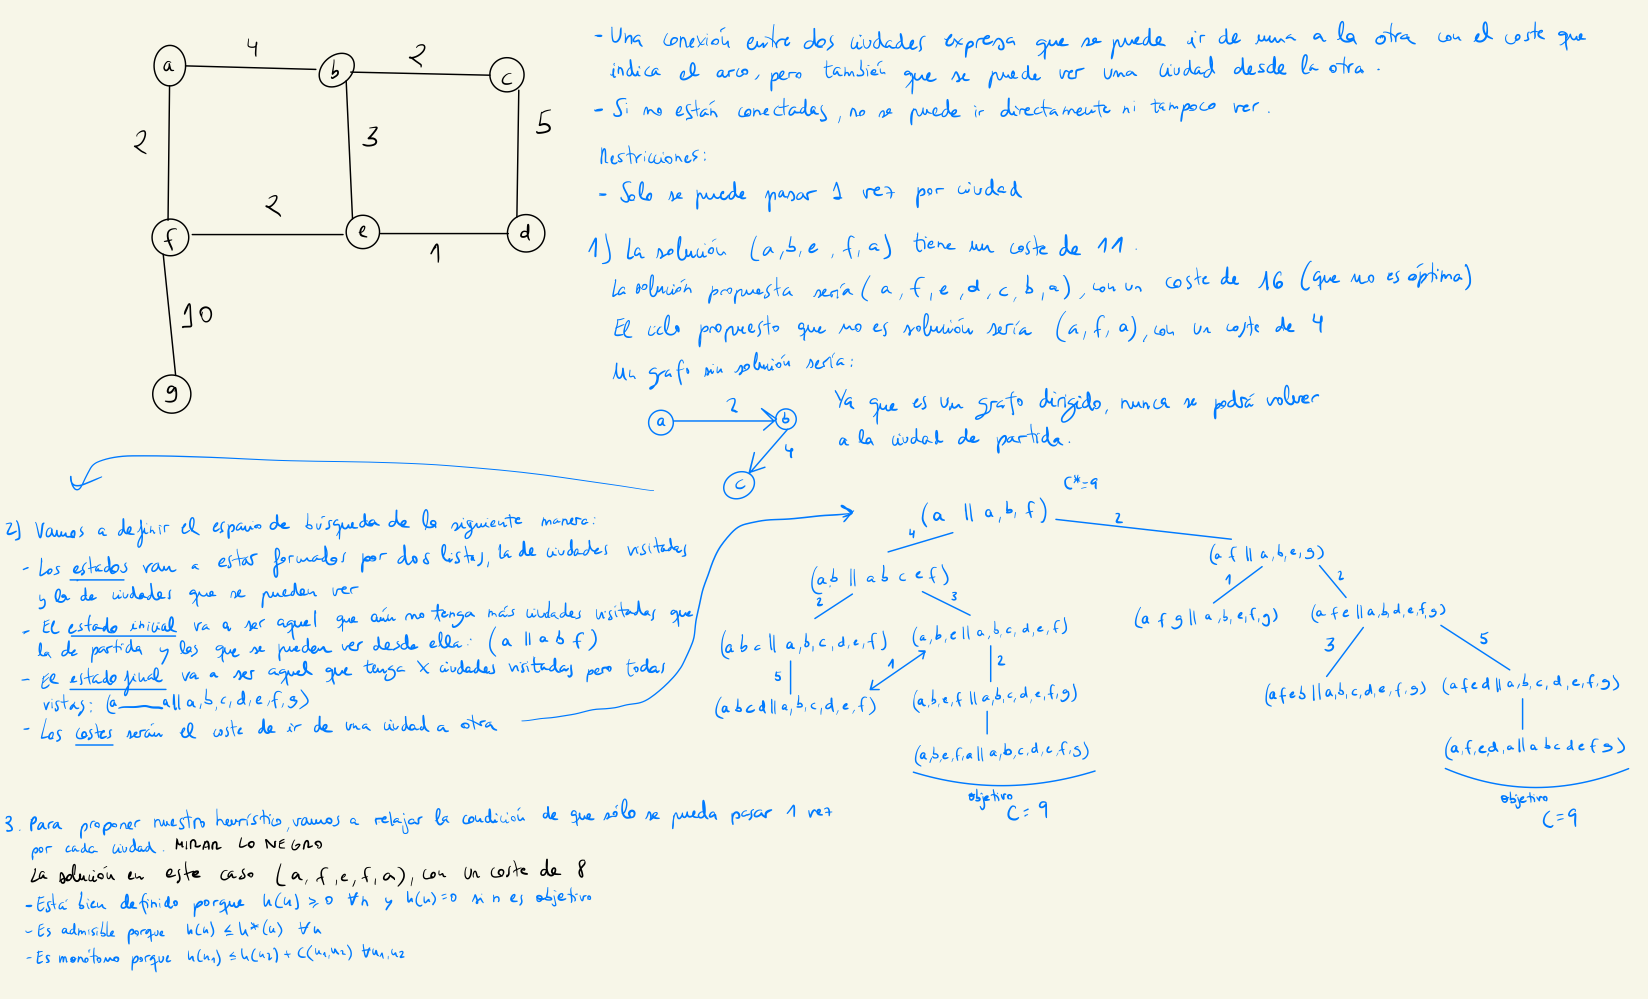 a
4
b
2
c
2
3
5
f
2
e
1
d
10
g
- Una conexión entre dos ciudades expresa que se puede ir de una a la otra con el coste que
indica el arco, pero también que se puede ver una ciudad desde la otra.
- Si no están conectadas, no se puede ir directamente ni tampoco ver.
Restricciones:
- Solo se puede pasar 1 vez por ciudad
1) La solución (a,b,e,f,a) tiene un coste de 11.
La solución propuesta sería (a,f,e,d,c,b,a), con un coste de 16 (que no es óptima)
El ciclo propuesto que no es solución sería (a,f,a), con un coste de 4
Un grafo sin solución sería:
a
2
b
4
c
Ya que es un grafo dirigido, nunca se podrá volver
a la ciudad de partida.
2) Vamos a definir el espacio de búsqueda de la siguiente manera:
- Los estados van a estar formados por dos listas, la de ciudades visitadas
y la de ciudades que se pueden ver
- El estado inicial va a ser aquel que aún no tenga más ciudades visitadas que
la de partida y los que se pueden ver desde ella: (a || a b f)
- El estado final va a ser aquel que tenga X ciudades visitadas pero todas
vistas: (a___a || a,b,c,d,e,f,g)
- Los costes serán el coste de ir de una ciudad a otra
C*=9
(a || a,b,f)
4
2
(a,b || a b c e f)
(a f || a,b,e,g)
2
3
1
2
(a b c || a,b,c,d,e,f)
(a,b,e || a,b,c,d,e,f)
(a f g || a,b,e,f,g)
(a f e || a,b,d,e,f,g)
5
1
2
3
5
(a b c d || a,b,c,d,e,f)
(a,b,e,f || a,b,c,d,e,f,g)
(a f e b || a,b,c,d,e,f,g)
(a f e d || a,b,c,d,e,f,g)
(a,b,e,f,a || a,b,c,d,e,f,g)
(a,f,e,d,a || a b c d e f g)
objetivo
C=9
objetivo
C=9
3. Para proponer nuestro heurístico, vamos a relajar la condición de que sólo se pueda pasar 1 vez
por cada ciudad. MIRAR LO NEGRO
La solución en este caso (a,f,e,f,a), con un coste de 8
- Está bien definido porque h(n) ≥ 0 ∀n y h(n)=0 si n es objetivo
- Es admisible porque h(n) ≤ h*(n) ∀n
- Es monótono porque h(n1) ≤ h(n2) + C(n1,n2) ∀n1,n2